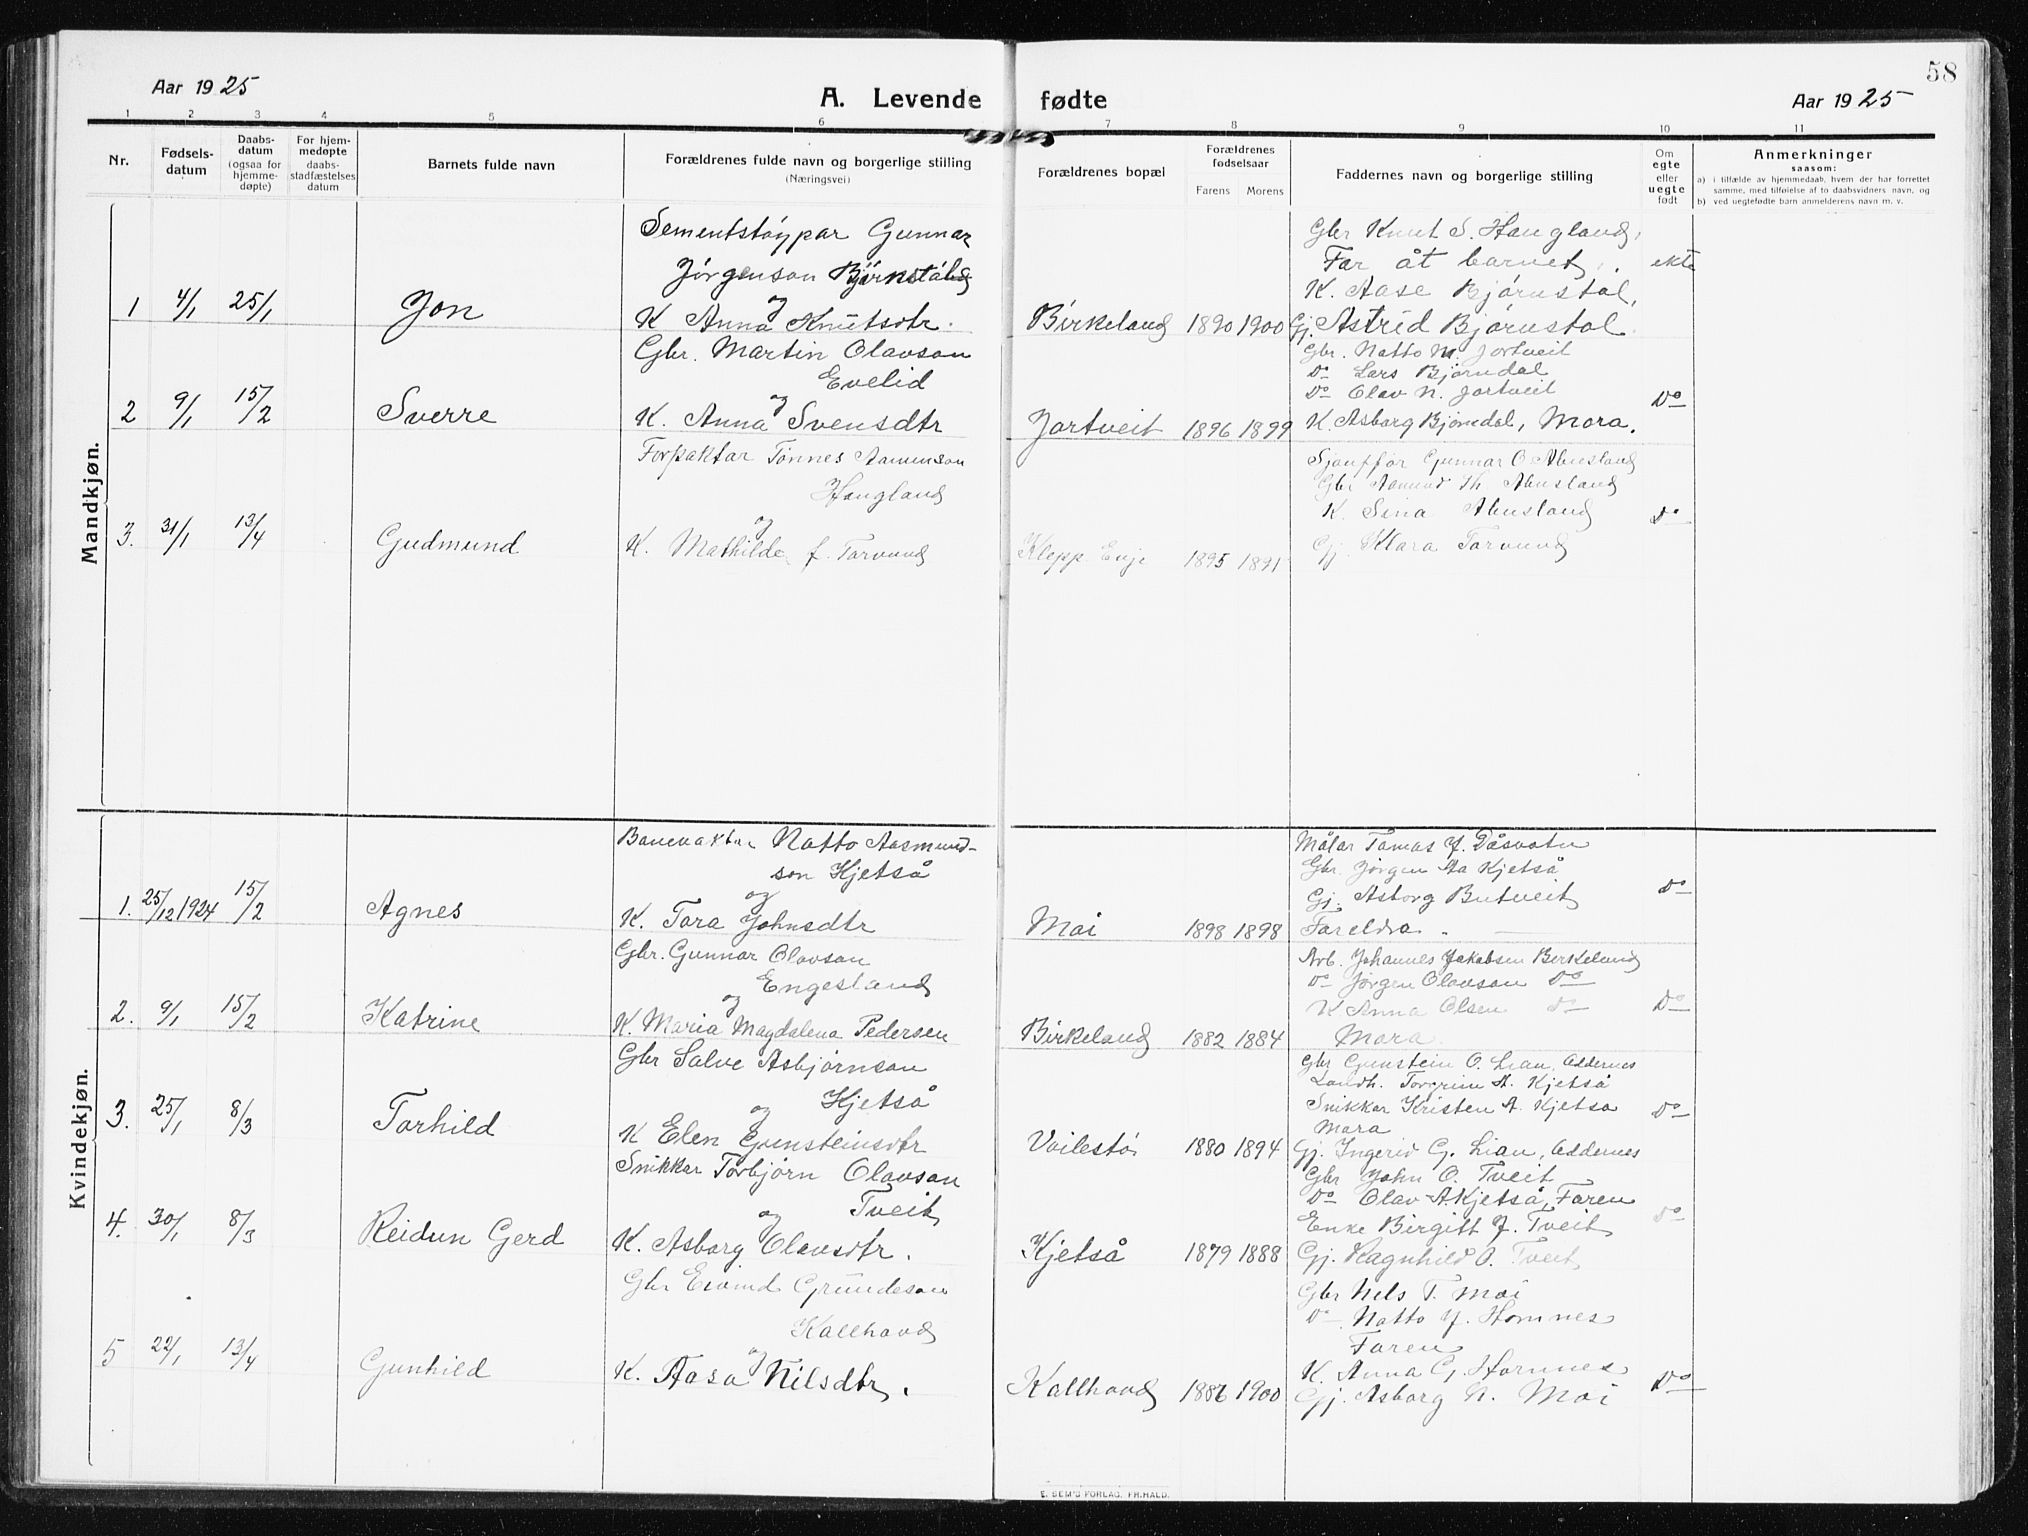 58
Aar 1925
A. Levende fødte
Aar 1925
1 2 3 4 5 6 7 8 9 10 11
Nr.
Fødsels-
datum
Daabs-
datum
(ogsaa for
hjemme-
døpte)
For hjem-
medøpte
daabs-
stadfæstelses
datum
Barnets fulde navn
Forældrenes fulde navn og borgerlige stilling
(Næringsvei)
Forældrenes bopæl
Forældrenes
fødselsaar
Farens Morens
Faddernes navn og borgerlige stilling
Om
egte
eller
uegte
født
Anmerkninger
saasom:
a) i tilfælde av hjemmedaab, hvem der har forrettet
samme, med tilføielse af to daabsvidners navn, og
b) ved uegtefødte barn anmelderens navn m. v.
Mandkjøn.
1 4/1 25/1 Jon
Sementstøypar Gunnar
Jørgenson Bjørnstøl
og
K Anna Knutsdtr.
Birkeland 1890 1900
Gbr Knut S. Haugland,
Far åt barnet,
K. Aase Bjørnstøl,
Gj. Astrid Bjørnstøl.
ekte
2 9/1 15/2 Sverre
Gbr. Martin Olavson
Evelid
og
K. Anna Svensdtr
Jortveit 1896 1899
Gbr. Natto N. Jortveit
Do Lars Bjørndal
Do Olav N. Jortveit
K Asborg Bjørndal, Mora.
Do
3. 31/1 13/4 Gudmund
Forpaktar Tønnes Aamunson
Haugland
og
K. Mathilde f. Tarvund
Klepp Evje 1895 1891
Sjauffør Gunnar O. Abusland
Gbr Aamund Th. Abusland
K Sina Abusland
Gj. Klara Tarvund
Do
Kvindekjøn.
1. 25/12 1924 15/2 Agnes
Banevaktar Natto Aasmund-
son Kjetså
og
K. Tara Johnsdtr
Moi 1898 1898
Målar Tomas J. Dåsvatn
Gbr. Jørgen Aa Kjetså
Gj. Asborg Butveit
Foreldra.
Do
2. 9/1 15/2 Katrine
Gbr. Gunnar Olavson
Engesland
og
K. Maria Magdalena Pedersen
Birkeland 1882 1884
Arb. Johannes Jakobsen Birkeland
Do Jørgen Olavson Do
K Anna Olsen Do
Mora.
Do
3. 25/1 8/3 Torhild
Gbr Salve Asbjørnson
Kjetså
og
K Elen Gunsteinsdtr
Voilestø 1880 1894
Gbr Gunstein O. Lian, Oddernes
Landh. Torgrim A. Kjetså
Snikkar Kristen A. Kjetså
Mora
Gj. Ingerid G. Lian, Oddernes
Do
4. 30/1 8/3 Reidun Gerd
Snikkar Torbjørn Olavson
Tveit
og
K. Asborg Olavsdtr.
Kjetså 1879 1888
Gbr John O. Tveit
Do Olav A Kjetså, Faren
Enke Birgitt J. Tveit
Gj. Ragnhild O. Tveit
Do
5 22/1 13/4 Gunhild
Gbr Eivind Grundeson
Kallhovd
og
K. Aasa Nilsdtr.
Kallhovd 1886 1900
Gbr Nels T. Moi
Do Natto J. Homnes
Faren
K. Anna G. Homnes
Gj. Asborg N. Moi
Do
E. SEM'S FORLAG, FR.HALD.